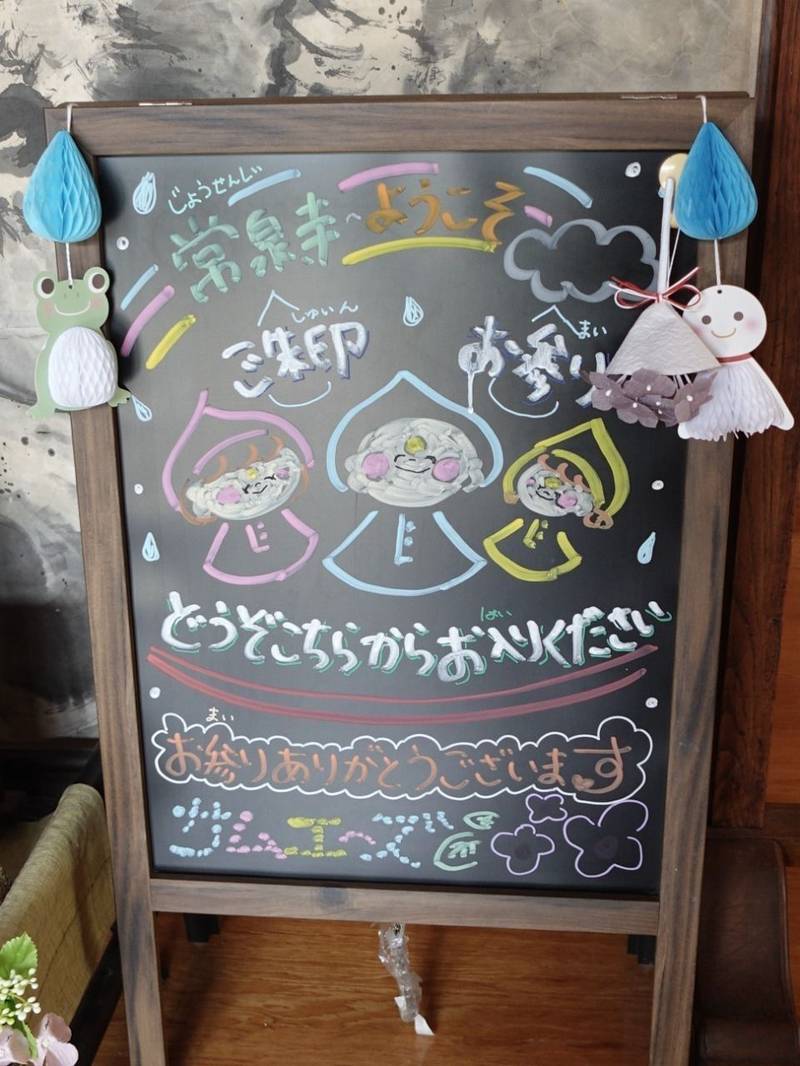 じょうせんじ
常泉寺へようこそ
しゅいん まい
ご朱印 お参り
じ じ じ
はい
どうぞこちらからお入りください
まい
お参りありがとうございます
サムエーズ